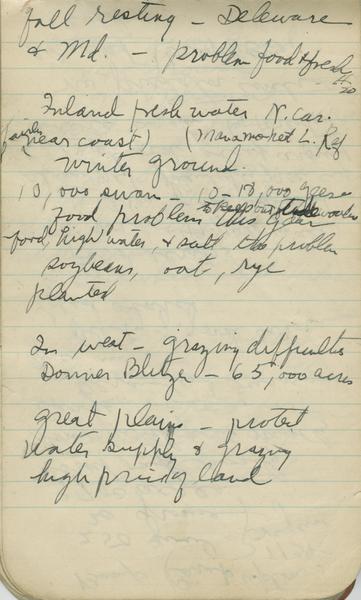 fall resting – Deleware
& Md. – problem food & fresh
H20
Inland fresh water N. Car.
(fairly near coast) (Mattamusket L. Ref
winter ground.
10,000 swan – 10–18,000 geese
food problem this year
food, high water, & salt the problem
soybeans, oat, rye
planted
In west – grazing difficulties
Donner Blitzer – 65,000 acres
great plains – protect
water supply & grazing
high price of land